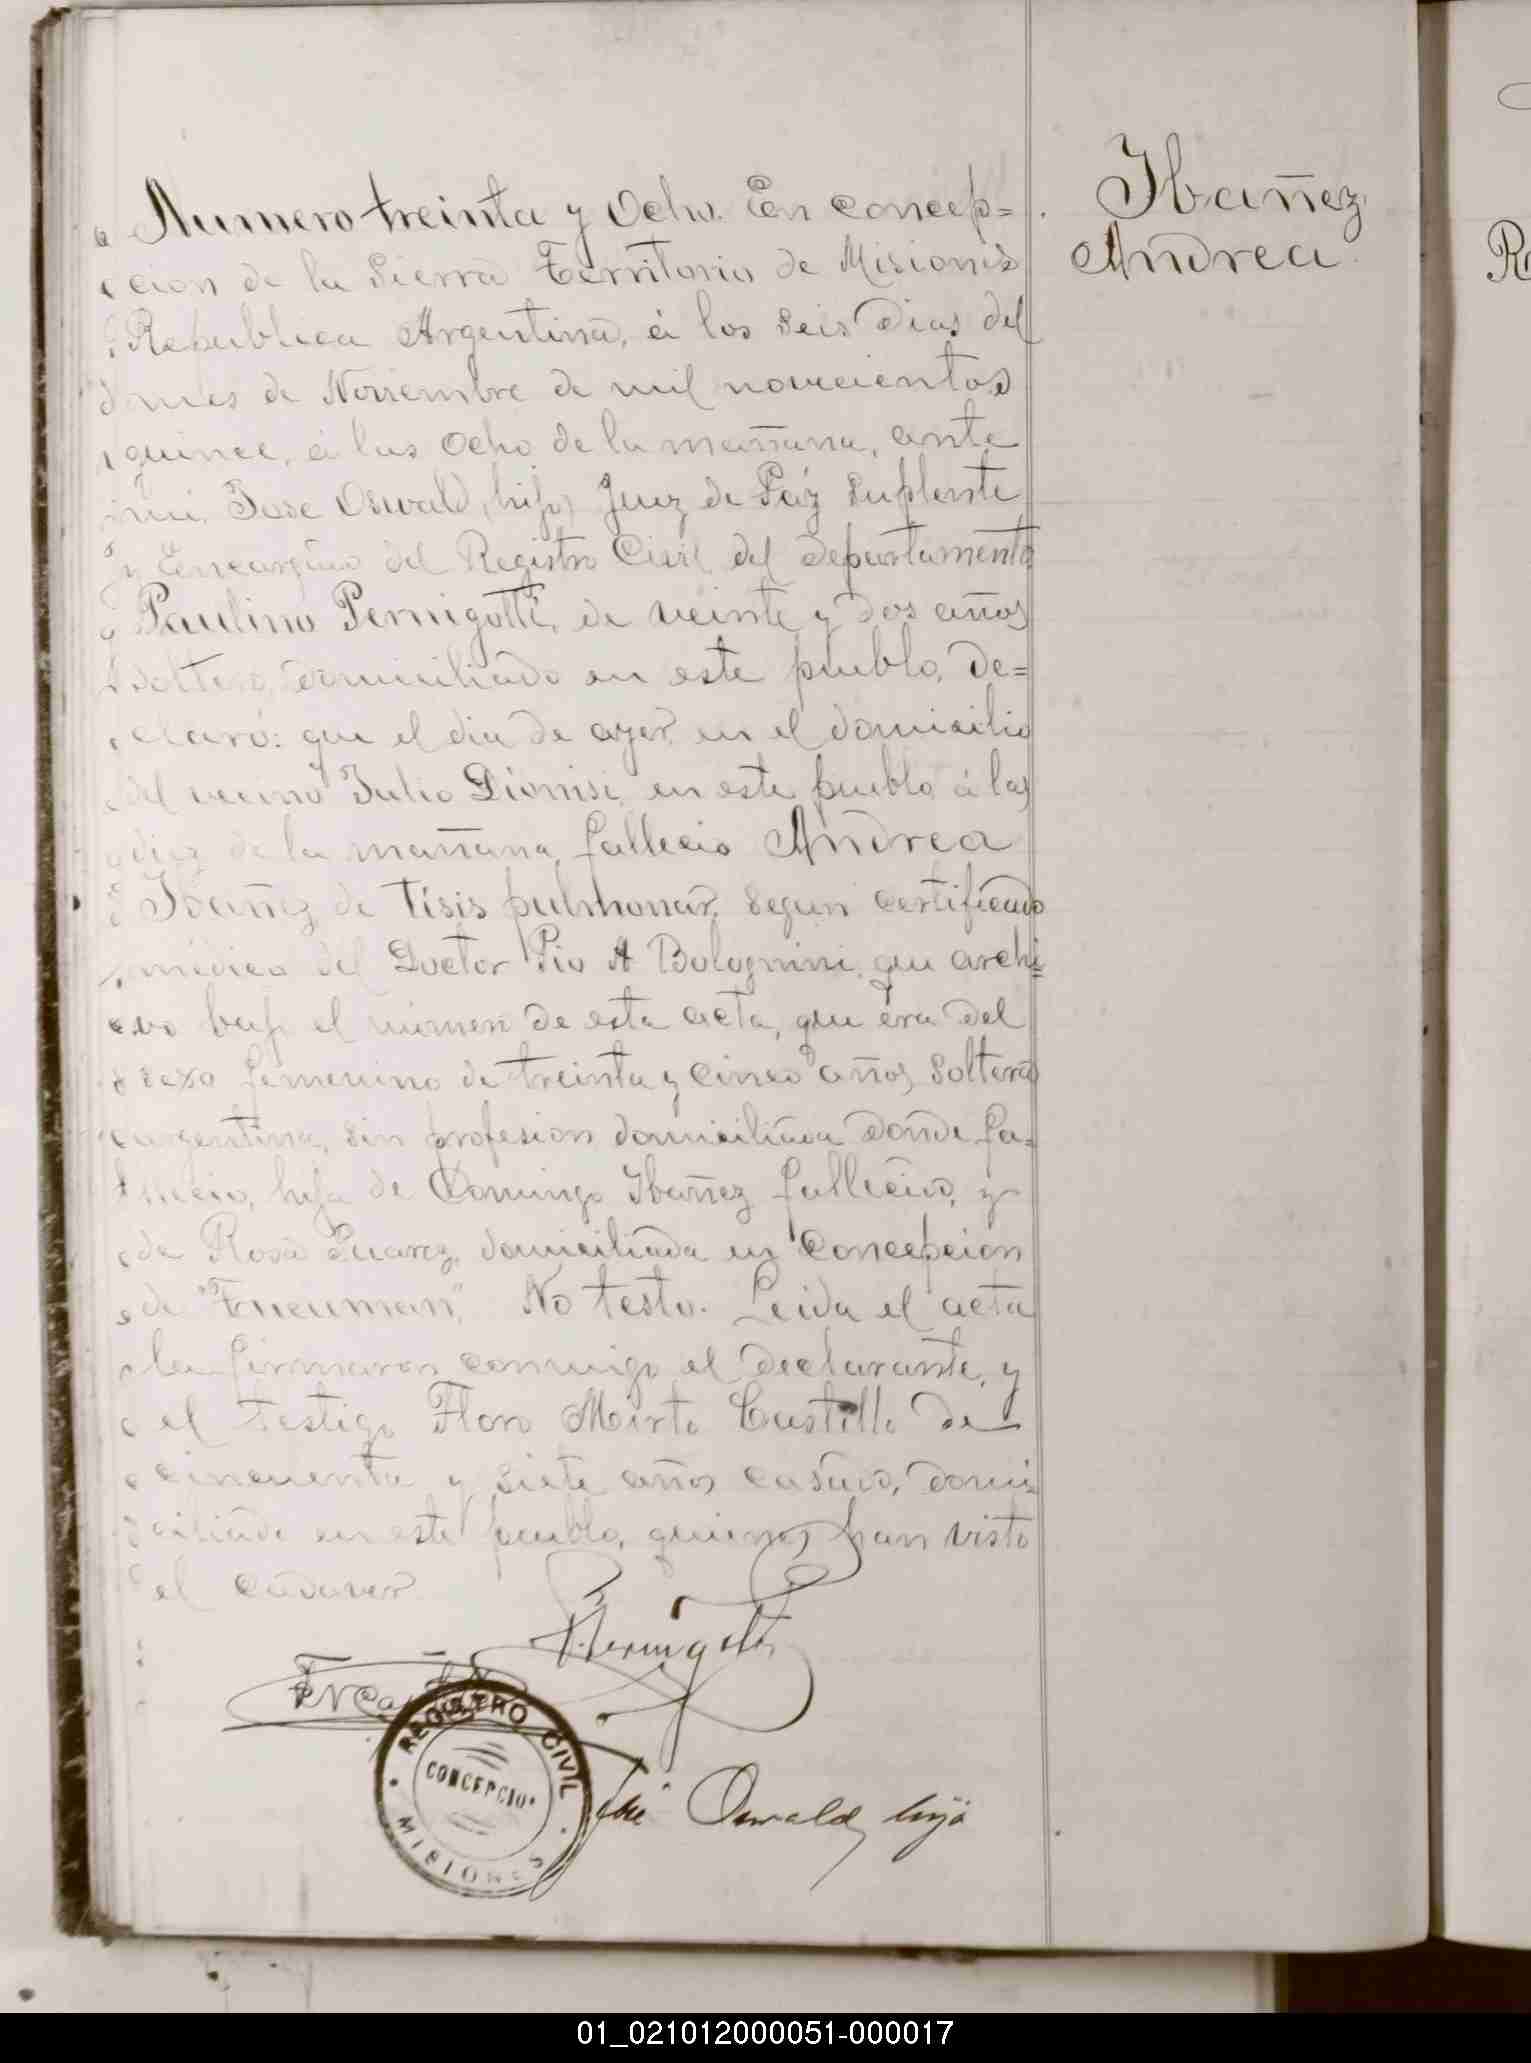 Numero treinta y Ocho. En Concep=
cion de la Sierra Territorio de Misiones
Republica Argentina, á los Seis Dias del
mes de Noviembre de mil novecientos
quince, á las Ocho de la mañana, ante
mi, Jose Oswald, (hijo) Juez de Páz Suplente
y Encargado del Registro Civil del Departamento
Paulino Pernigotti, de veinte y dos años
soltero, domiciliado en este pueblo, De=
claró: que el dia de ayer, en el domicilio
del vecino Julio Dionisi, en este pueblo á las
diez de la mañana, fallecio Andrea
Ibañez de Tisis pulmonar, Segun certificado
médico del Doctor Pio A Bolognini, que archi=
vo bajo el número de esta acta, que era del
sexo femenino de treinta y cinco años, Soltera
argentina, sin profesion domiciliada donde fa=
llecio, hija de Domingo Ibañez fallecido, y
de Rosa Suarez, domiciliada en Concepcion
de "Tucuman". No testo. Leida el acta
la firmaron conmigo el declarante, y
el testigo Floro Mirto Castillo de
cincuenta y siete años casado, domi=
ciliado en este pueblo, quienes han visto
el cadaver
Pernigotti
REGISTRO CIVIL
CONCEPCION
MISIONES
José Oswald, hijo
Ibañez
Andrea
01_021012000051-000017